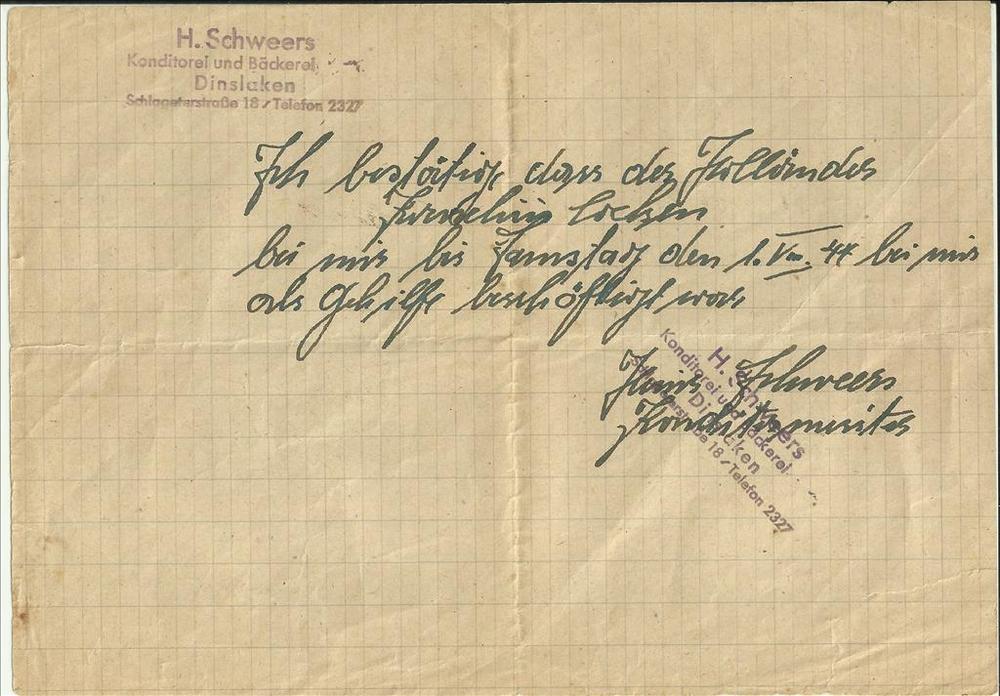 H. Schweers
Konditorei und Bäckerei
Dinslaken
Schlageterstraße 18 / Telefon 2327
Ich bestätige dass der Holländer
bei mir bis Samstag den 1. VIII. 44 bei mir
als Gehilfe beschäftigt war
Hans Schweers
Konditormeister
H. Schweers
Konditorei und Bäckerei
Dinslaken
Schlageterstraße 18 / Telefon 2327